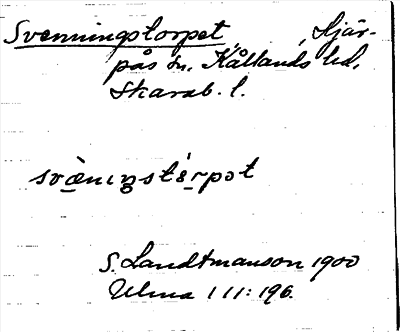 Svenningstorpet, Skjär-
pås sn. Kållands hd.
Skarab. l.
svæ̀niŋstɷ́rpət
S. Landtmanson 1900
Ulma 111:196.